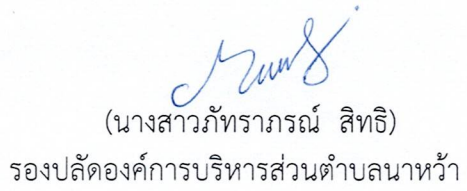 (นางสาวภัทราภรณ์ สิทธิ)
รองปลัดองค์การบริหารส่วนตำบลนาหว้า